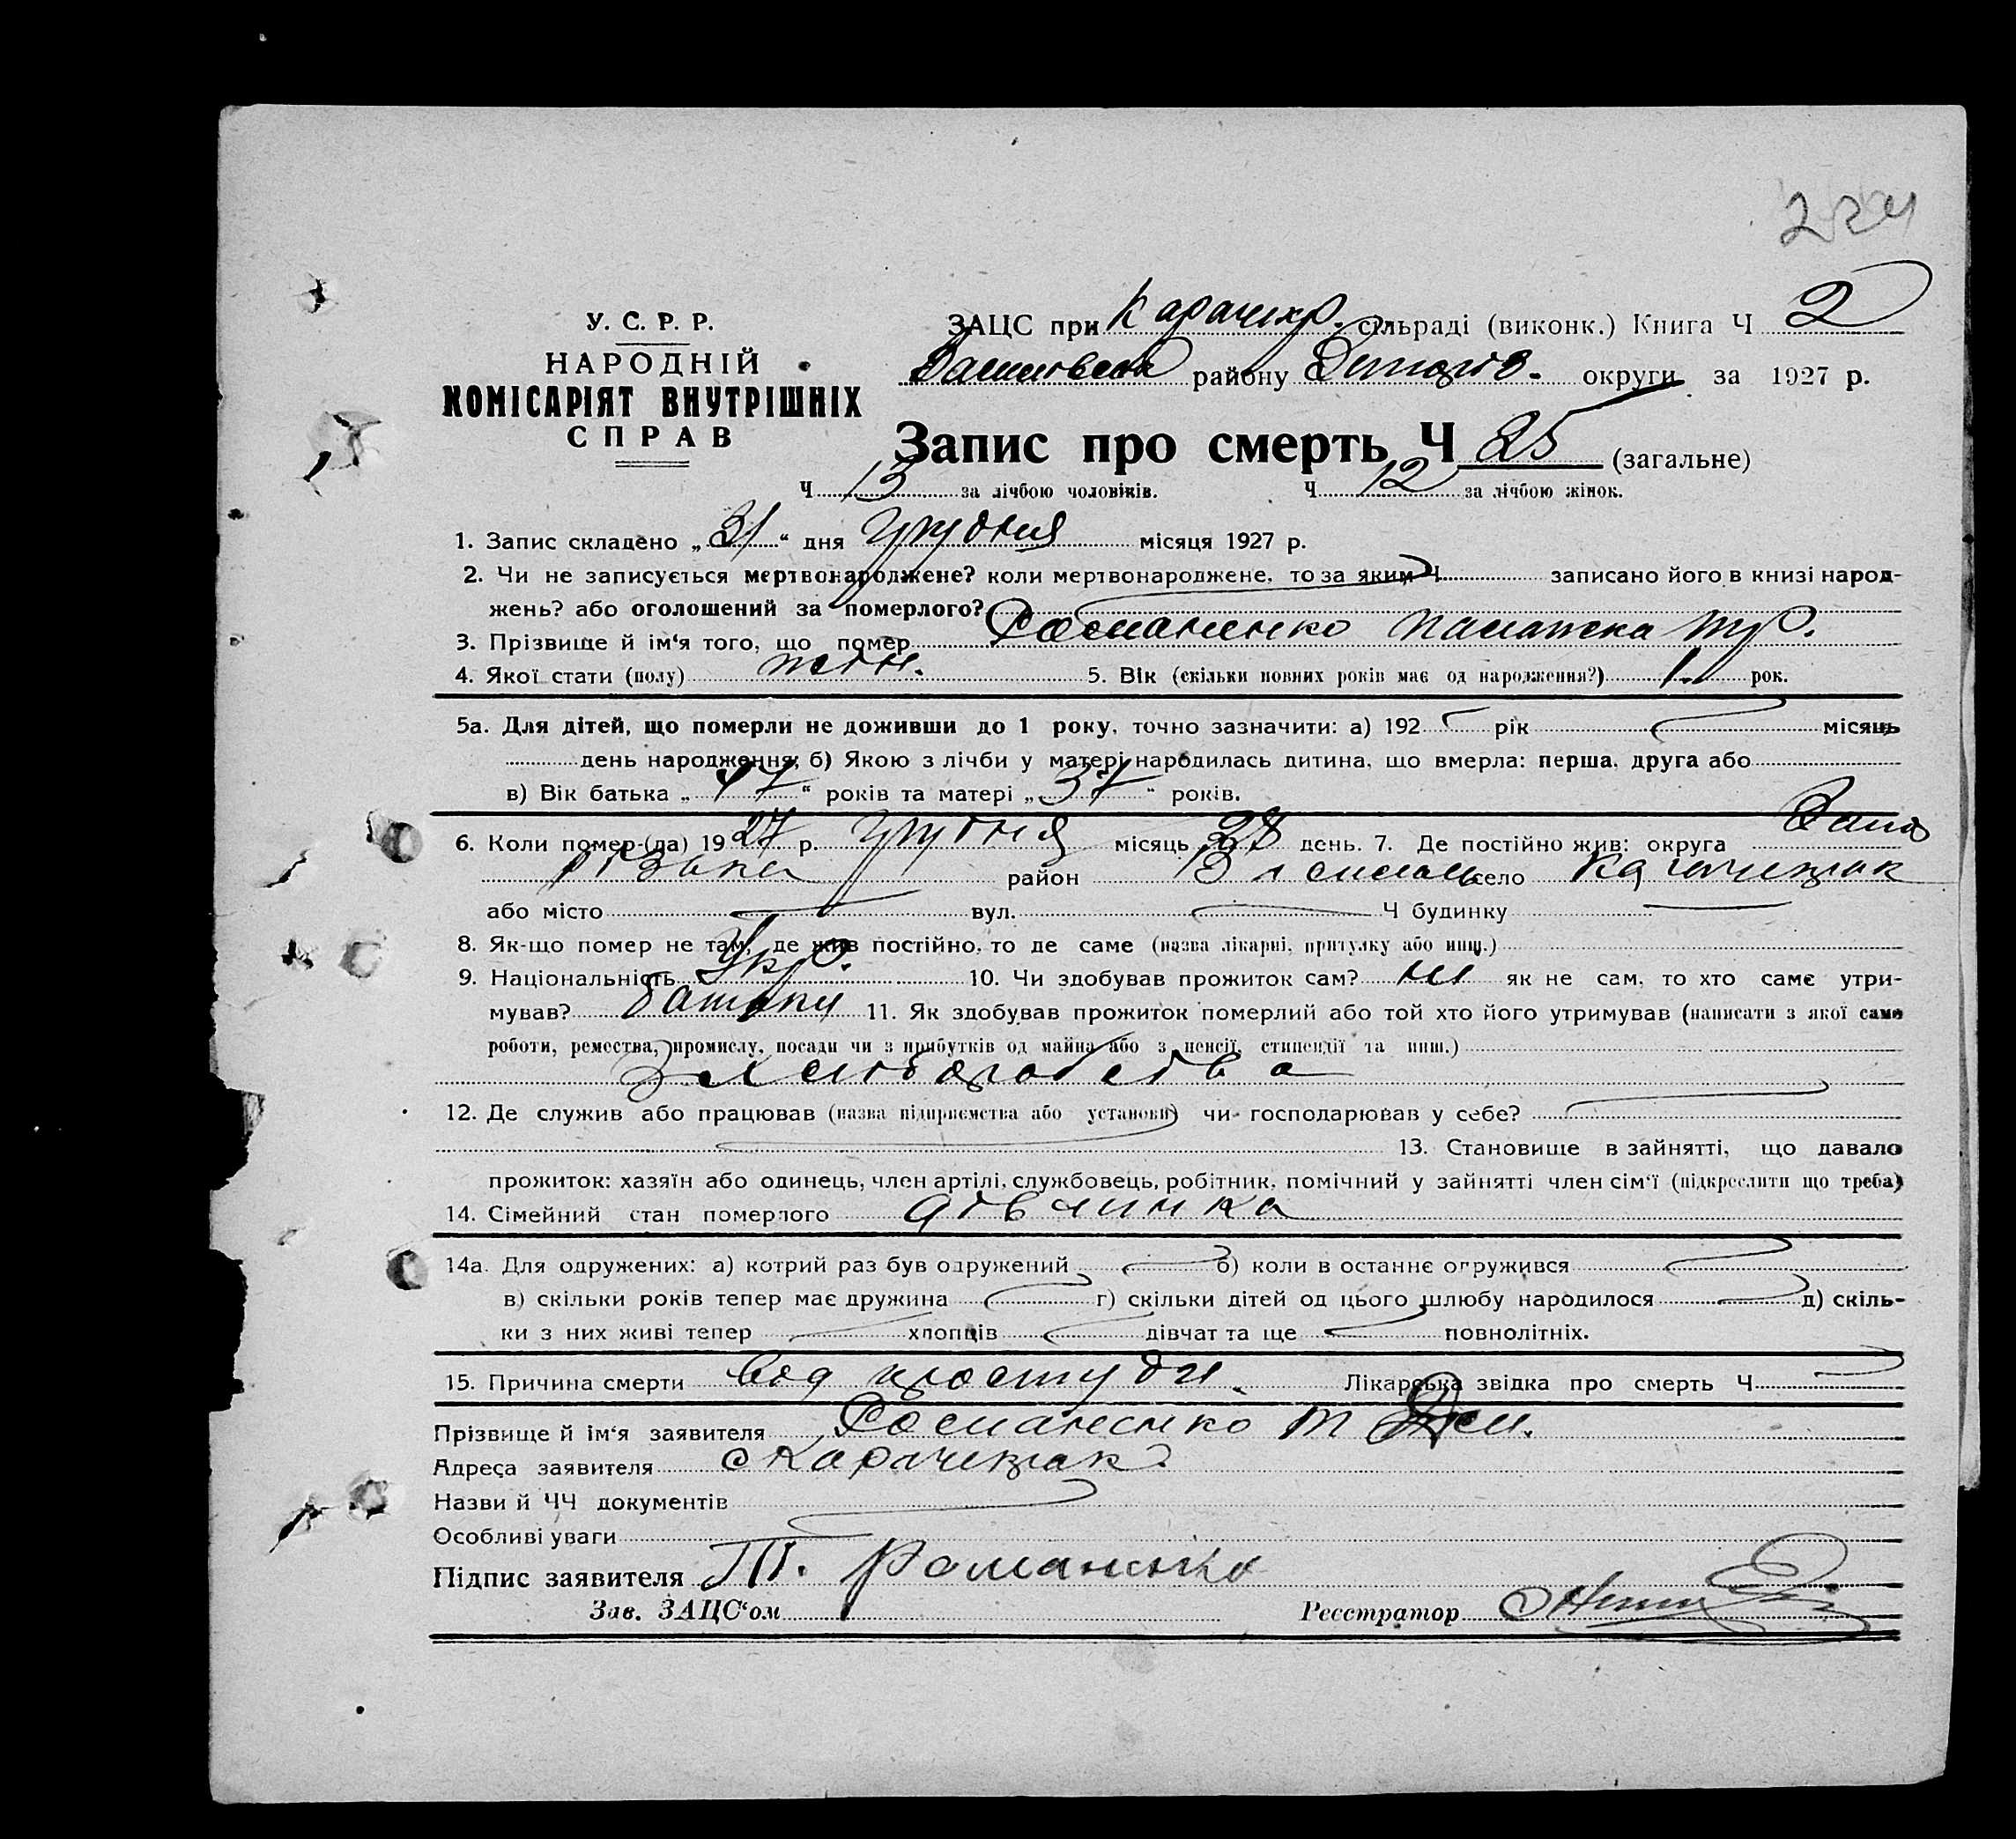 224
У. С. Р. Р.
НАРОДНІЙ
КОМІСАРІЯТ ВНУТРІШНІХ
СПРАВ
ЗАЦС при Карачекр. сільраді (виконк.) Книга Ч 2
району Запоріз. округи за 1927 р.
Запис про смерть Ч 25 (загальне)
Ч 13 за лічбою чоловіків. Ч 12 за лічбою жінок.
1. Запис складено „31“ дня грудня місяця 1927 р.
2. Чи не записується мертвонароджене? коли мертвонароджене, то за яким Ч записано його в книзі народ-
жень? або оголошений за померлого?
3. Прізвище й ім‘я того, що помер Романенко Палажка Тр.
4. Якої стати (полу) жін. 5. Вік (скільки повних років має од народження?) 1. рок.
5а. Для дітей, що померли не доживши до 1 року, точно зазначити: а) 192 рік місяць
день народження; б) Якою з лічби у матері народилась дитина, що вмерла: перша, друга або
в) Вік батька „47“ років та матері „37“ років.
6. Коли помер-(ла) 1927 р. грудня місяць 28 день. 7. Де постійно жив: округа Запо
різька район село
або місто вул. Ч будинку
8. Як-що помер не там, де жив постійно, то де саме (назва лікарні, притулку або инш.)
9. Національність Укр. 10. Чи здобував прожиток сам? ні як не сам, то хто саме утри-
мував? батьки 11. Як здобував прожиток померлий або той хто його утримував (написати з якої саме
роботи, ремества, промислу, посади чи з прибутків од майна або з пенсії, стипендії та инш.)
з хліборобства
12. Де служив або працював (назва підприємства або установи) чи господарював у себе?
13. Становище в зайнятті, що давало
прожиток: хазяїн або одинець, член артілі, службовець, робітник, помічний у зайнятті член сім‘ї (підкреслити що треба)
14. Сімейний стан померлого дівчинка
14а. Для одружених: а) котрий раз був одружений б) коли в останнє одружився
в) скільки років тепер має дружина г) скільки дітей од цього шлюбу народилося д) скіль-
ки з них живі тепер хлопців дівчат та ще повнолітніх.
15. Причина смерти від простуди. Лікарська звідка про смерть Ч
Прізвище й ім‘я заявителя Романенко Т
Адреса заявителя с Карачекрак
Назви й ЧЧ документів
Особливі уваги
Підпис заявителя Т. Романенко
Зав. ЗАЦС‘ом Реєстратор